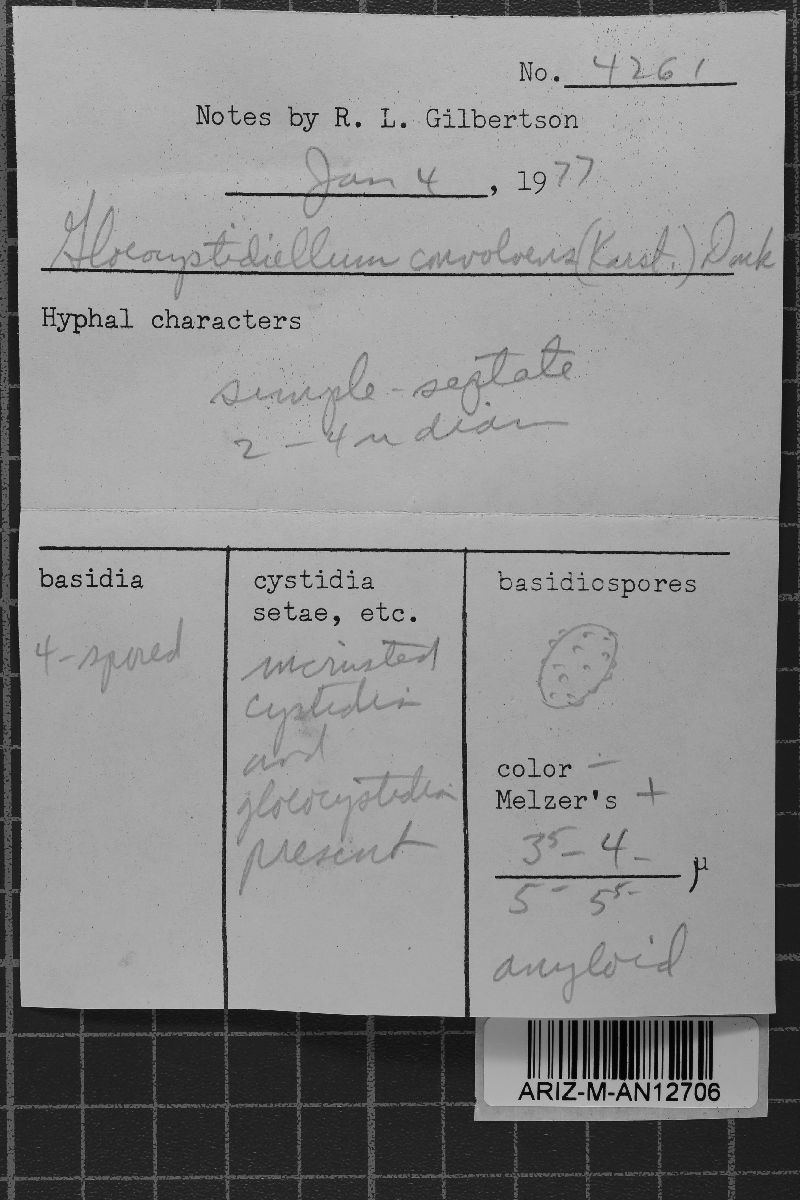 No. 4261
Notes by R. L. Gilbertson
Jan 4, 1977
Gloeocystidiellum convolvens (Karst.) Donk
Hyphal characters
simple-septate
2-4 µ diam
basidia
4-spored
cystidia
setae, etc.
incrusted
cystidia
and
gloeocystidia
present
basidiospores
color -
Melzer's +
3⁵- 4- µ
5- 5⁵-
amyloid
ARIZ-M-AN12706